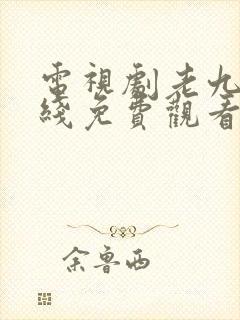 電視劇老九
綫免費觀看
余魯西